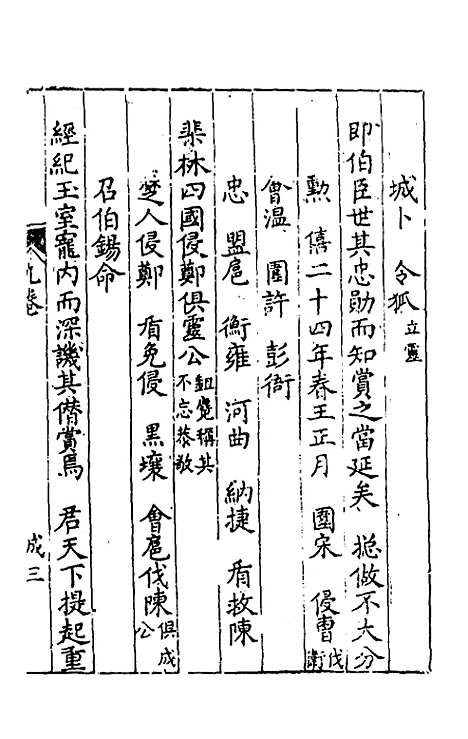 城卜　令狐立靈
即伯臣世其忠勛而知賞之當延矣　揔做不大分
勲　僖二十四年春王正月　圍宋　侵曹伐衛
會溫　圍許　彭衙
忠　盟扈　衡雍　河曲　納捷　盾救陳
棐林四國侵鄭俱靈公鉏麑稱其不忘恭敬
楚人侵鄭　盾免侵　黒壤　會扈伐陳俱成公
召伯錫命
經紀王室寵內而深譏其僭賞焉　君天下提起重
九卷
成三